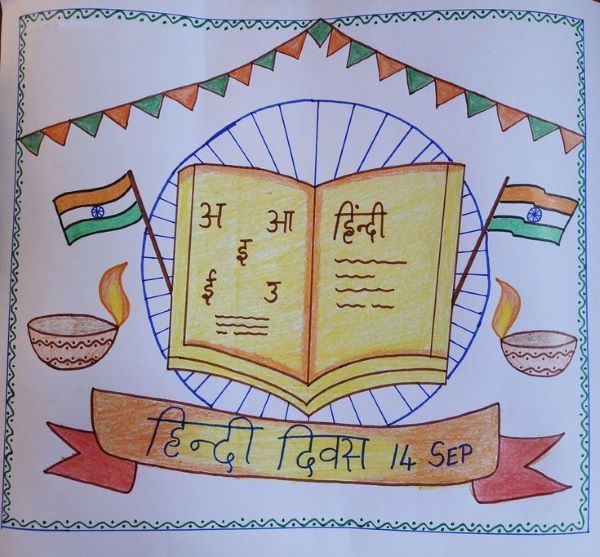 अ आ
इ
ई उ
हिंन्दी
हिन्दी दिवस 14 SEP